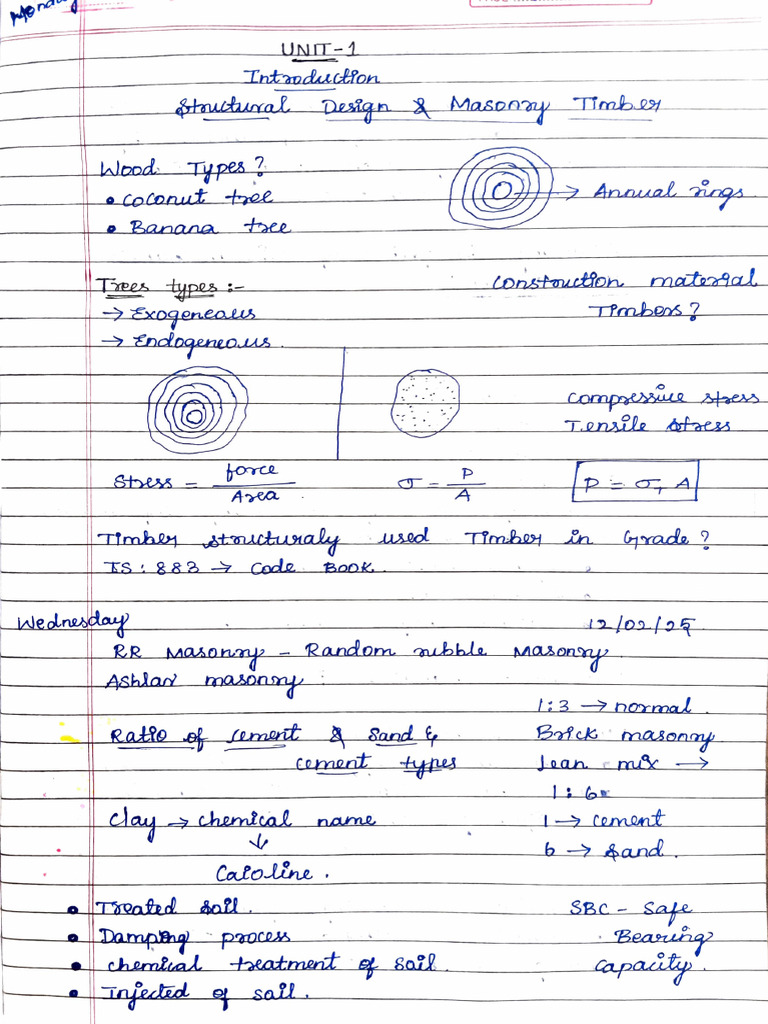 Monday
UNIT-1
Introduction
Structural Design & Masonry Timber
Wood Types?
• Coconut tree
• Banana tree
→ Annual rings
Trees types :-
→ Exogeneous
→ Endogeneous.
Construction material
Timbers?
Compressive stress
Tensile stress
Stress = force / Area
σ = P / A
P = σ, A
Timber structuraly used Timber in Grade?
IS : 883 → Code Book.
Wednesday 12/02/25
RR Masonry - Random rubble Masonry
Ashlar masonry
Ratio of cement & sand &
cement types
1:3 → normal.
Brick masonry
lean mix →
1:6
1 → cement
6 → sand.
Clay → chemical name
↓
Caioline.
• Treated soil.
• Damping process
• chemical treatment of soil.
• Injected of soil.
SBC - Safe
Bearing
Capacity.